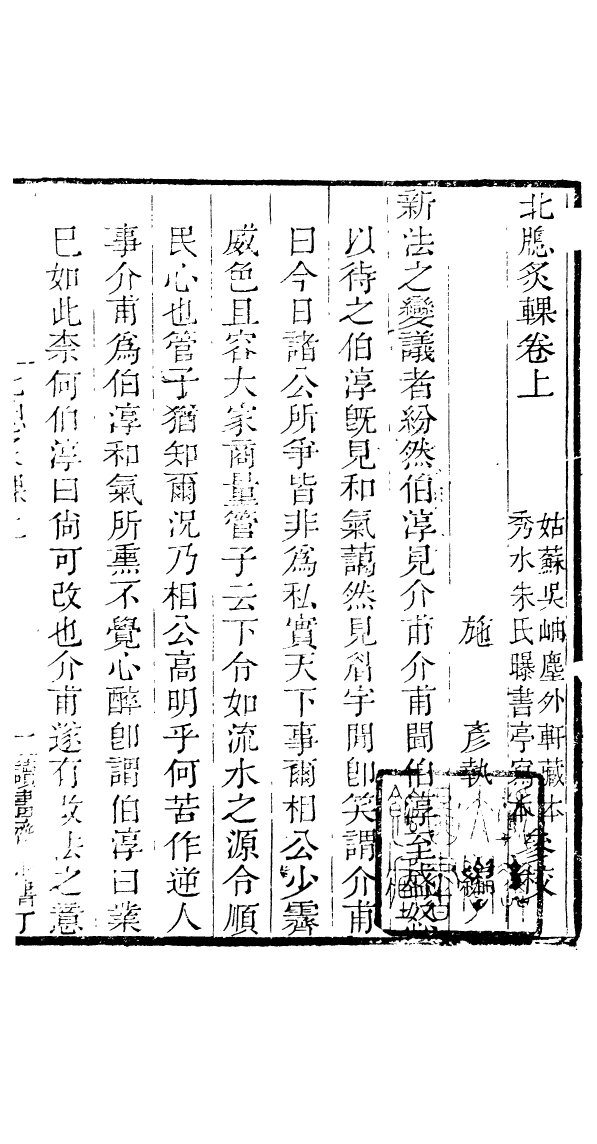 北牕炙輠卷上
姑蘇吳岫塵外軒藏本
秀水朱氏曝書亭寫本參校
施彥執編
新法之變議者紛然伯淳見介甫介甫聞伯淳至盛怒
以待之伯淳旣見和氣藹然見眉宇間卽笑謂介甫
曰今日諸公所爭皆非爲私實天下事爾相公少霽
威色且容大家商量管子云下令如流水之源令順
民心也管子猶知爾況乃相公高明乎何苦作逆人
事介甫爲伯淳和氣所熏不覺心醉卽謂伯淳曰業
已如此柰何伯淳曰尙可改也介甫遂有改法之意
一 讀畫齋 書丁